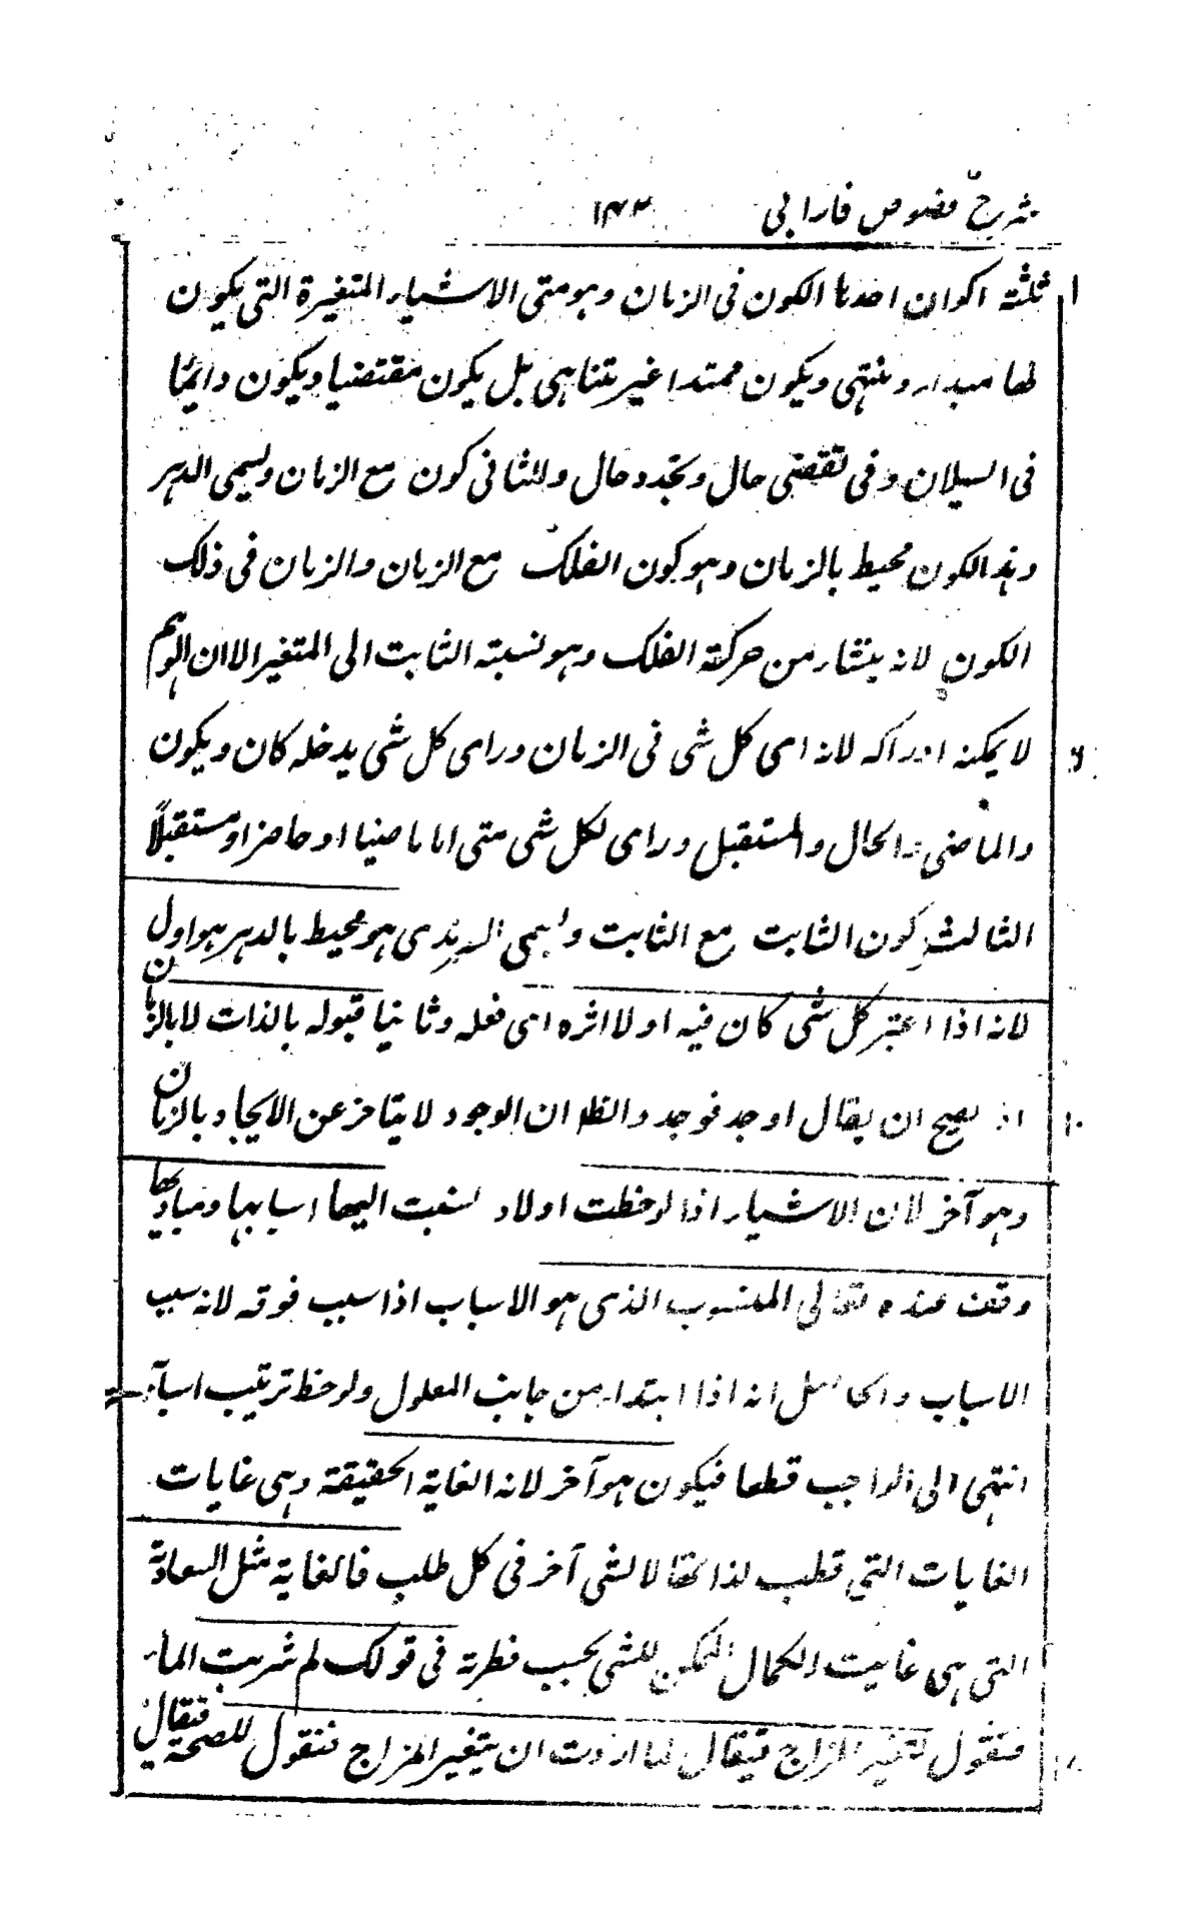 شرح فصوص فارابی ۱۴۲
ثلثة اکوان احدها الکون فی الزمان وهو متی الاشیاء المتغیرة التی یکون
لها مبداء ومنتهی ویکون ممتدا غیر متناهی بل یکون مقتضیا ویکون دائمًا
فی السیلان وفی تقضی حال وتجدد حال والثانی کون مع الزمان ویسمی الدهر
وهذا الکون محیط بالزمان وهو کون الفلک مع الزمان والزمان فی ذلک
الکون لانه ینشاء من حرکة الفلک وهو نسبته الثابت الی المتغیر الا ان الوهم
لا یمکنه ادراکه لانه رای کل شی فی الزمان ورای کل شی یدخله کان ویکون
والماضی والحال والمستقبل ورای لکل شی متی اما ماضیا او حاضرا او مستقبلًا
الثالث کون الثابت مع الثابت ویسمی السرمدی هو محیط بالدهر هو اول
لانه اذا اعتبر کل شی کان فیه اولا اثره ای فعله وثانیا قبوله بالذات لا بالزمان
اذ یصح ان یقال اوجد فوجد والظا ان الوجود لا یتاخر عن الایجاد بالزمان
وهو آخر لان الاشیاء اذا لوحظت اولاد لنسبت الیها اسبابها ومبادیها
وقفت عنده تعالی المنسوب الذی هو الاسباب اذا سبب فوقه لانه سبب
الاسباب والحاصل انه اذا ابتداء من جانب المعلول ولوحظ ترتیب اسبابه
انتهی الی الواجب قطعا فیکون هو آخر لانه الغایة الحقیقة وهی غایات
الغایات التی تطلب لذاتها لا لشی آخر فی کل طلب فالغایة مثل السعادة
التی هی غایت الکمال الممکن للشی بحسب فطرته فی قولک لم شربت الماء
فتقول لتغیر المزاج فیقال لما اردت ان یتغیر المزاج فتقول للصحة فیقال